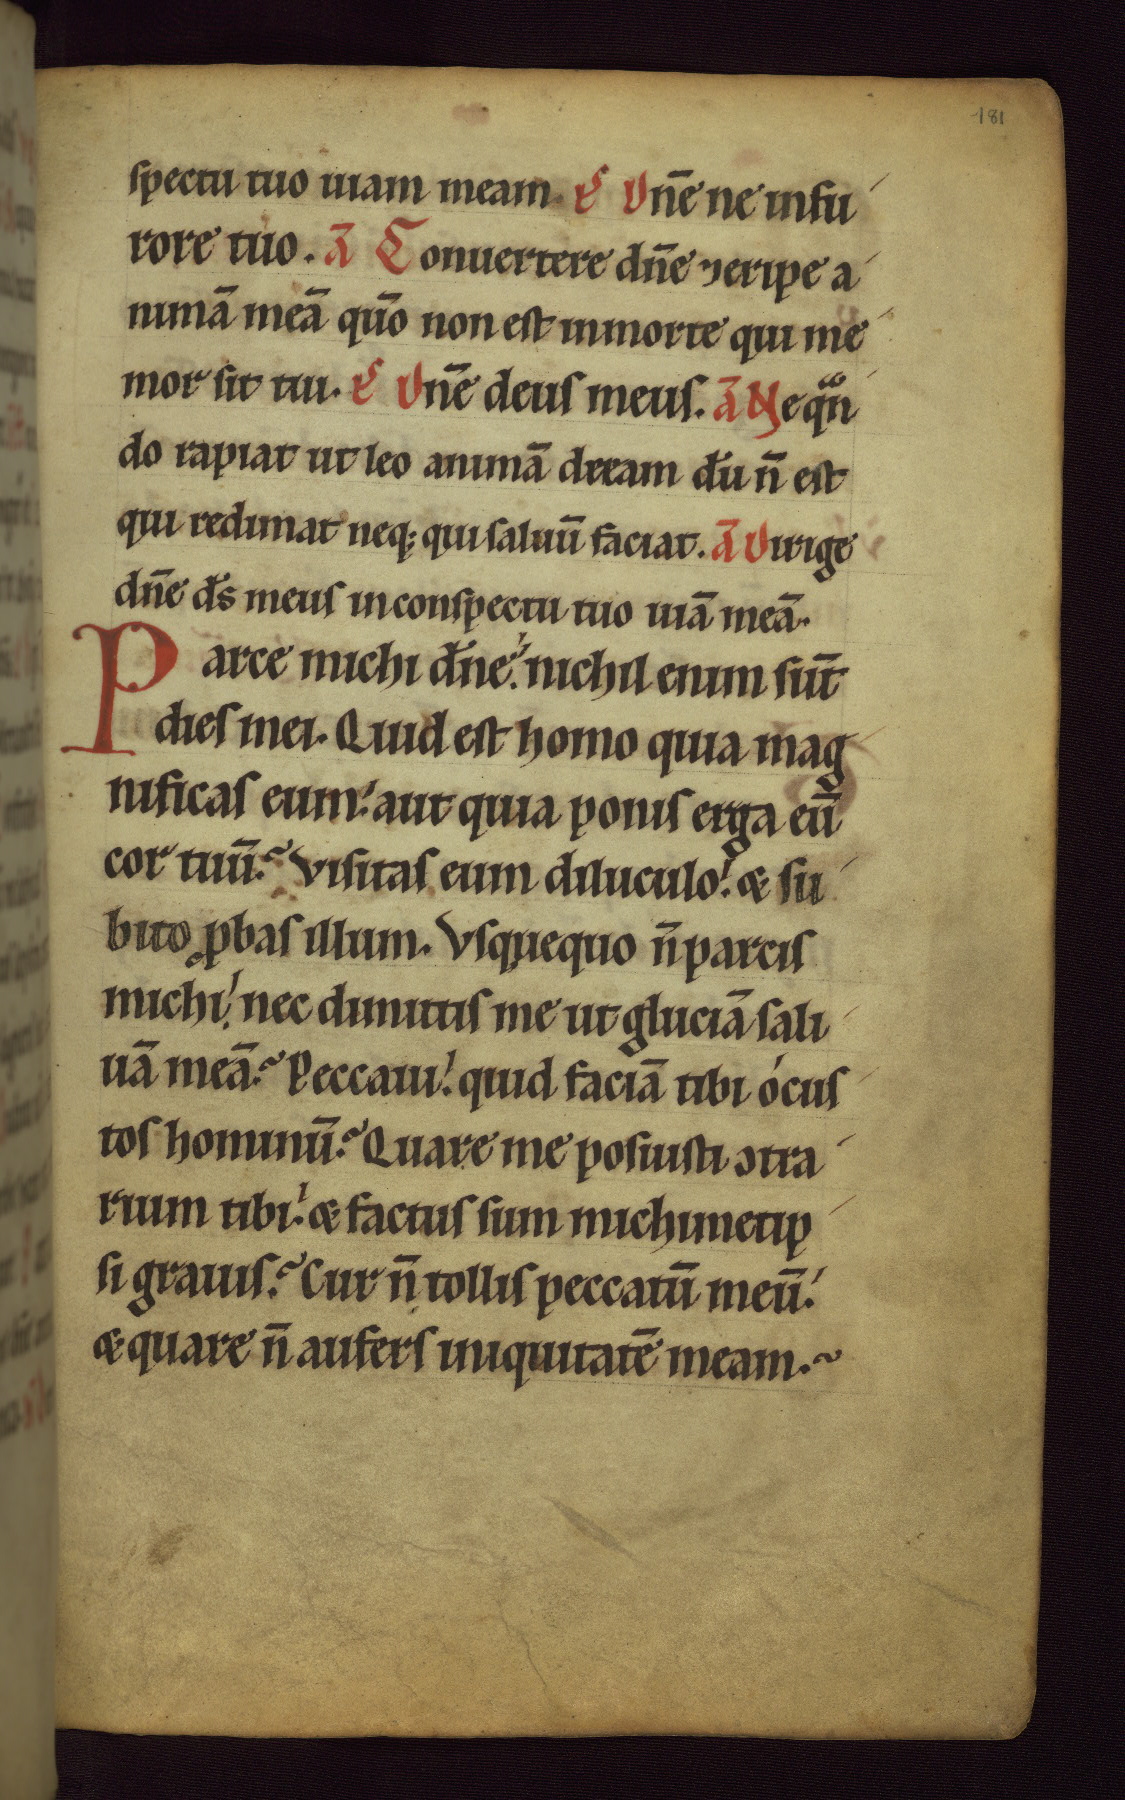 181
spectu tuo uiam meam. P̃ Dn̄e ne in fu
rore tuo. Ā Conuertere dn̄e ⁊ eripe a
nimā meā qūo non est in morte qui me
mor sit tui. P̃ Dn̄e deus meus. Ā Ne qn̄
do rapiat ut leo animā meam dū n̄ est
qui redimat neq; qui saluū faciat. Ā Dirige
dn̄e ds̄ meus in conspectu tuo uiā meā.
Parce michi dn̄e. nichil enim sūt
dies mei. Quid est homo quia mag
nificas eum. aut quia ponis erga eū
cor tuū? Visitas eum diluculo. & su
bito ꝓbas illum. Vsquequo n̄ parcis
michi. nec dimittis me ut gluciā sali
uā meā? Peccaui. quid faciā tibi ó cus
tos hominū? Quare me posuisti ↄtra
rium tibi. & factus sum michimetip
si grauis? Cur n̄ tollis peccatū meū.
& quare n̄ aufers iniquitatē meam.